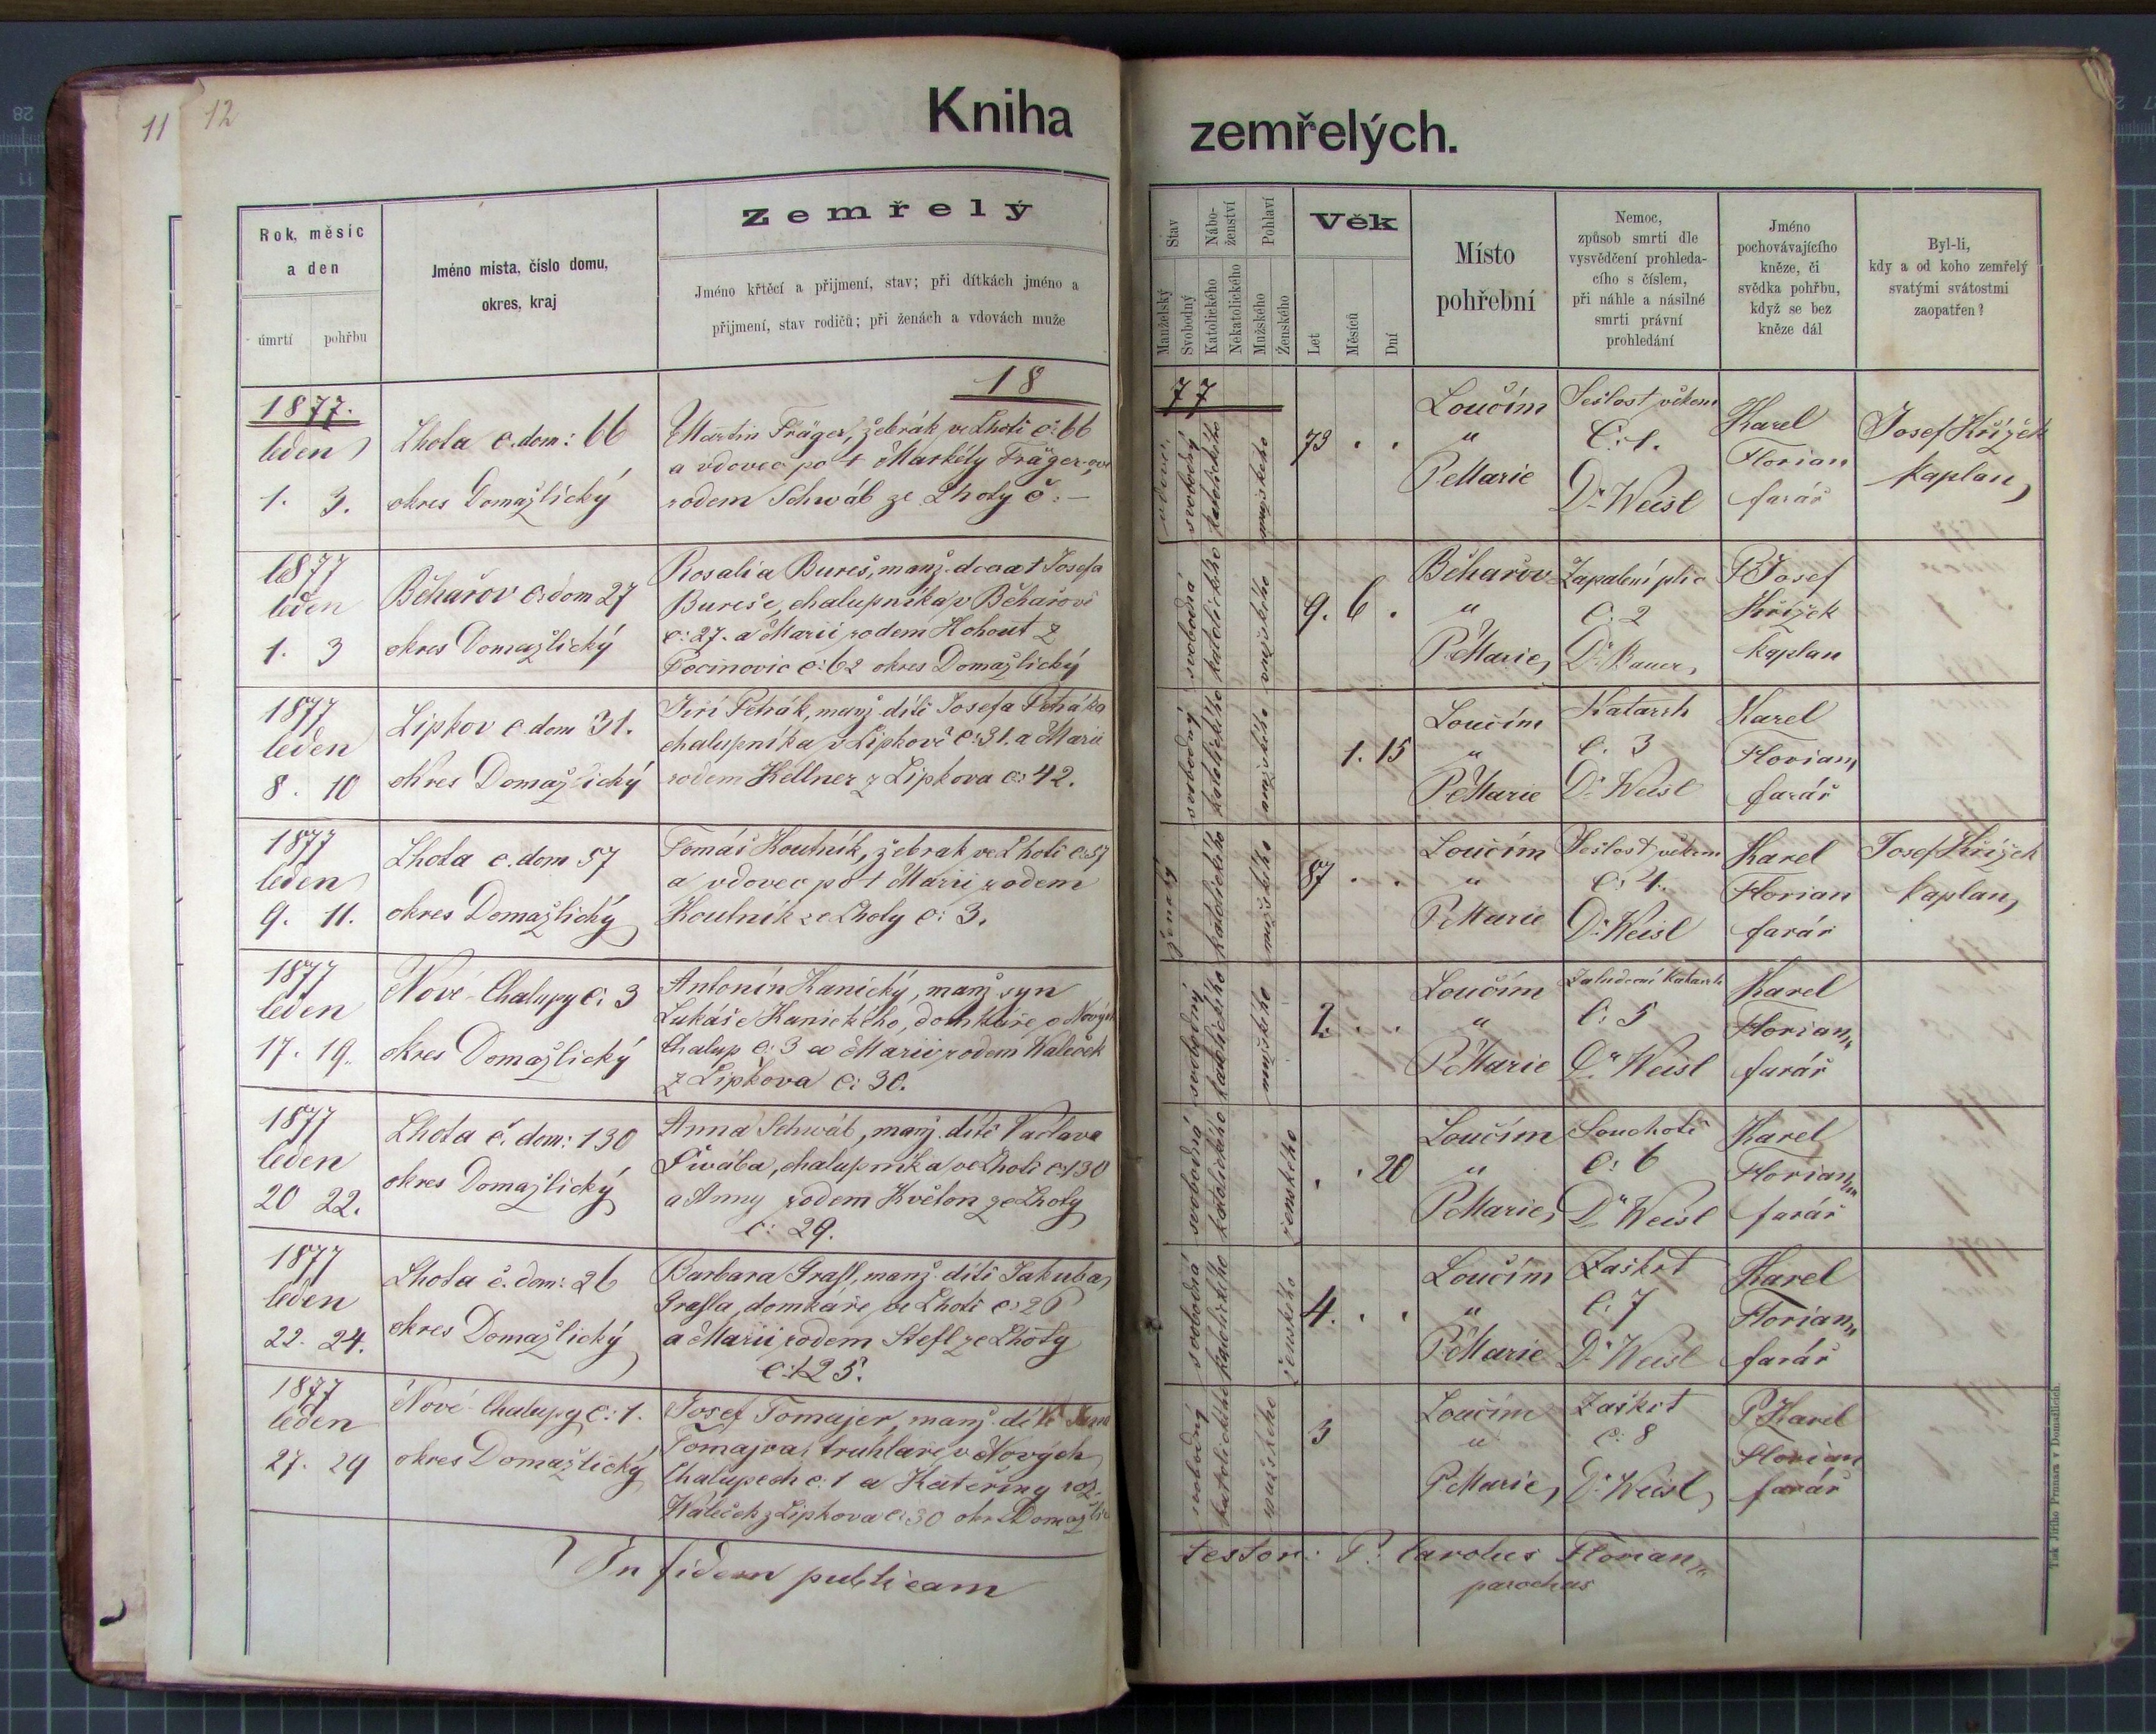 11 12
Kniha zemřelých.
Rok, měsíc
a den
úmrtí pohřbu
Jméno místa, číslo domu,
okres, kraj
Zemřelý
Jméno křtěcí a přijmení, stav; při dítkách jméno a
přijmení, stav rodičů; při ženách a vdovách muže
Stav
Nábo-
ženství
Pohlaví
Manželský
Svobodný
Katolického
Nekatolického
Mužského
Ženského
Věk
Let
Měsíců
Dní
Místo
pohřební
Nemoc,
způsob smrti dle
vysvědčení prohleda-
cího s číslem,
při náhle a násilné
smrti právní
prohledání
Jméno
pochovávajícího
kněze, či
svědka pohřbu,
když se bez
kněze dál
Byl-li,
kdy a od koho zemřelý
svatými svátostmi
zaopatřen?
18 77
1877.
leden
1. 3.
Lhota č. dom: 66
okres Domažlický
Martin Träger, žebrák ve Lhotě č: 66
a vdovec po † Markéty Träger-
rodem Schwáb ze Lhoty č: –
vdovec
svobodný
katolického
mužského
73 . .
Loučím
"
P. Marie
Sešlost věkem
Č: 1.
Dr Weisl
Karel
Florian
farář
Josef Křížek
kaplan
1877
leden
1. 3
Běhařov č: dom 27
okres Domažlický
Rosalia Bureš, manž. dcera † Josefa
Bureše, chalupníka v Běhařově
č: 27. a Marii rodem Kohout z
Pocinovic č: 62 okres Domažlický
svobodná
katolického
mužského
9. 6 .
Běhařov
"
P. Marie,
Zapálení plic
Č: 2
Dr Bauer,
P. Josef
Křížek
kaplan
1877
leden
8. 10
Lipkov č. dom 31.
okres Domažlický
Jiří Petrák, manž. dítě Josefa Petráka
chalupníka v Lipkově č: 31. a Marii
rodem Kellner z Lipkova č: 42.
svobodný
katolického
mužského
1. 15
Loučím
"
P. Marie
Katarrh
č. 3
Dr Weisl
Karel
Florian
farář
1877
leden
9. 11.
Lhota č. dom 57
okres Domažlický
Tomáš Koutník, žebrak ve Lhotě č: 57
a vdovec po † Marii rodem
Koutník ze Lhoty č: 3.
ženatý
katolického
mužského
87 . .
Loučím
"
P. Marie
Sešlost věkem
Č: 4.
Dr Weisl
Karel
Florian
farář
Josef Křížek
kaplan,
1877
leden
17. 19.
Nové-Chalupy č: 3
okres Domažlický
Antonín Kanický, manž. syn
Lukáše Kanického, domkáře v Nových
Chalup č: 3 a Marii rodem Waleček
z Lipkova č: 30.
svobodný
katolického
mužského
2. . .
Loučím
"
P. Marie
Žaludeční katarrh
Č: 5
Dr Weisl
Karel
Florian
farář
1877
leden
20 22.
Lhota č. dom: 130
okres Domažlický
Anna Schwáb, manž. dítě Václava
Švába, chalupníka ve Lhotě č: 130
a Anny rodem Květon ze Lhoty
č: 29.
svobodná
katolického
ženského
. . 20
Loučím
"
P. Marie,
Souchotě
Č: 6
Dr Weisl
Karel
Florian
farář
1877
leden
22. 24.
Lhota č. dom: 26
okres Domažlický
Barbara Grafl, manž. dítě Jakuba
Grafla, domkáře ve Lhotě č: 26
a Marii rodem Stefl ze Lhoty
č: 125.
svobodná
katolického
ženského
4. . .
Loučím
"
P. Marie
Záškrt
č. 7
Dr Weisl
Karel
Florian
farář
1877
leden
27. 29
Nové-Chalupy č: 1.
okres Domažlický
Josef Tomajer, manž. dítě
Tomajra, truhláře v Nových
Chalupech č. 1 a Kateřiny roz.
Waleček z Lipkova č: 30
svobodný
katolického
mužského
3
Loučím
"
P. Marie,
Záškrt
č: 8
Dr Weisl,
P. Karel
Florian
farář
In fidem publicam
testor: P. Carolus Florian
parochus
Tisk Jiřího Prunara v Domažlicích.